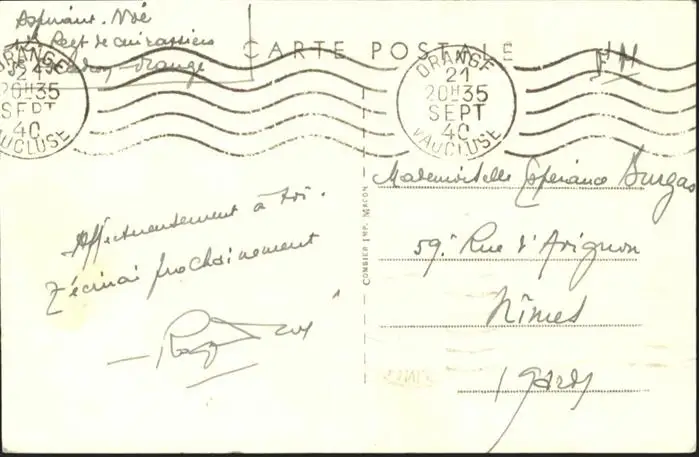 Aspirant. Noé
Regt de cuirassiers
Orange
CARTE POSTALE
F M
ORANGE
21
20H35
SEPT
40
VAUCLUSE
ORANGE
21
20H35
SEPT
40
VAUCLUSE
Affectueusement à toi.
T'écrirai prochainement
COMBIER IMP. MACON
Mademoiselle Espérance Burgas
59. Rue d'Avignon
Nîmes
Gard